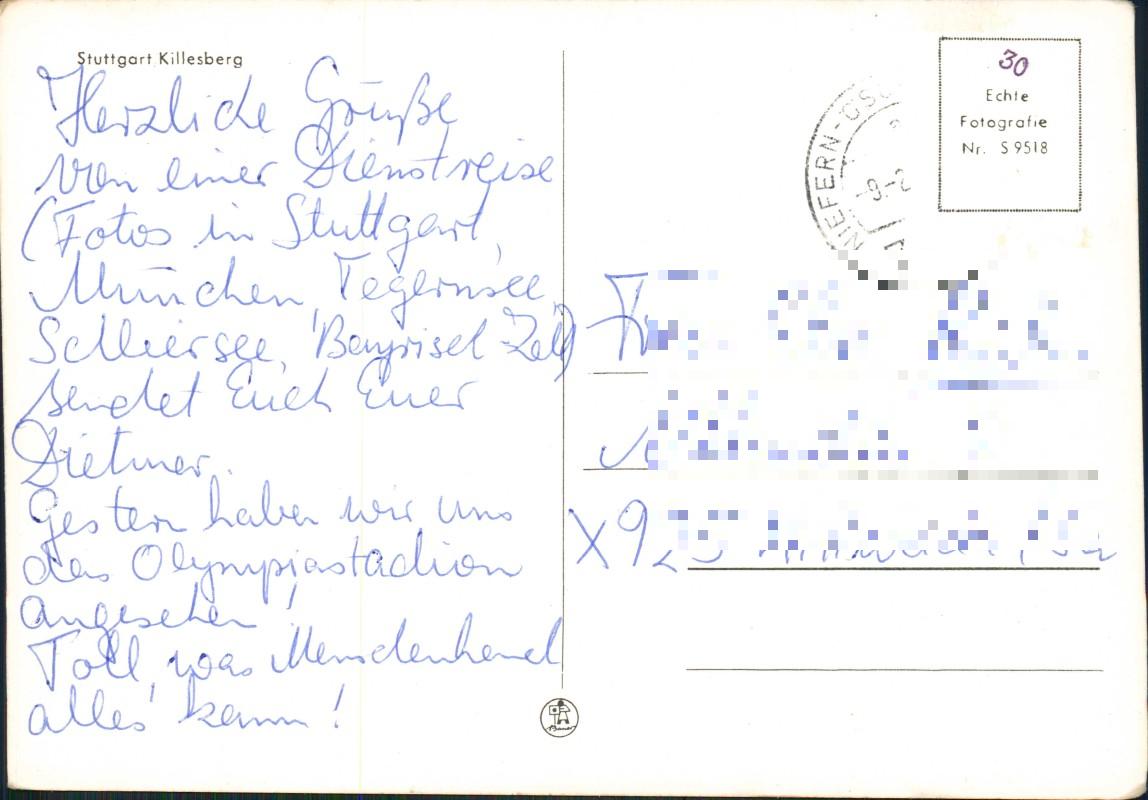 Stuttgart Killesberg
Herzliche Grüße
von einer Dienstreise
(Fotos in Stuttgart,
München, Tegernsee,
Schliersee, Bayrisch Zell)
sendet Euch Euer
Dietmar.
Gestern haben wir uns
das Olympiastadion
angesehen!
Toll, was Menschenhand
alles kann!
NIEFERN-ÖSC
-9.-2
30
Echte
Fotografie
Nr. S 9518
X92